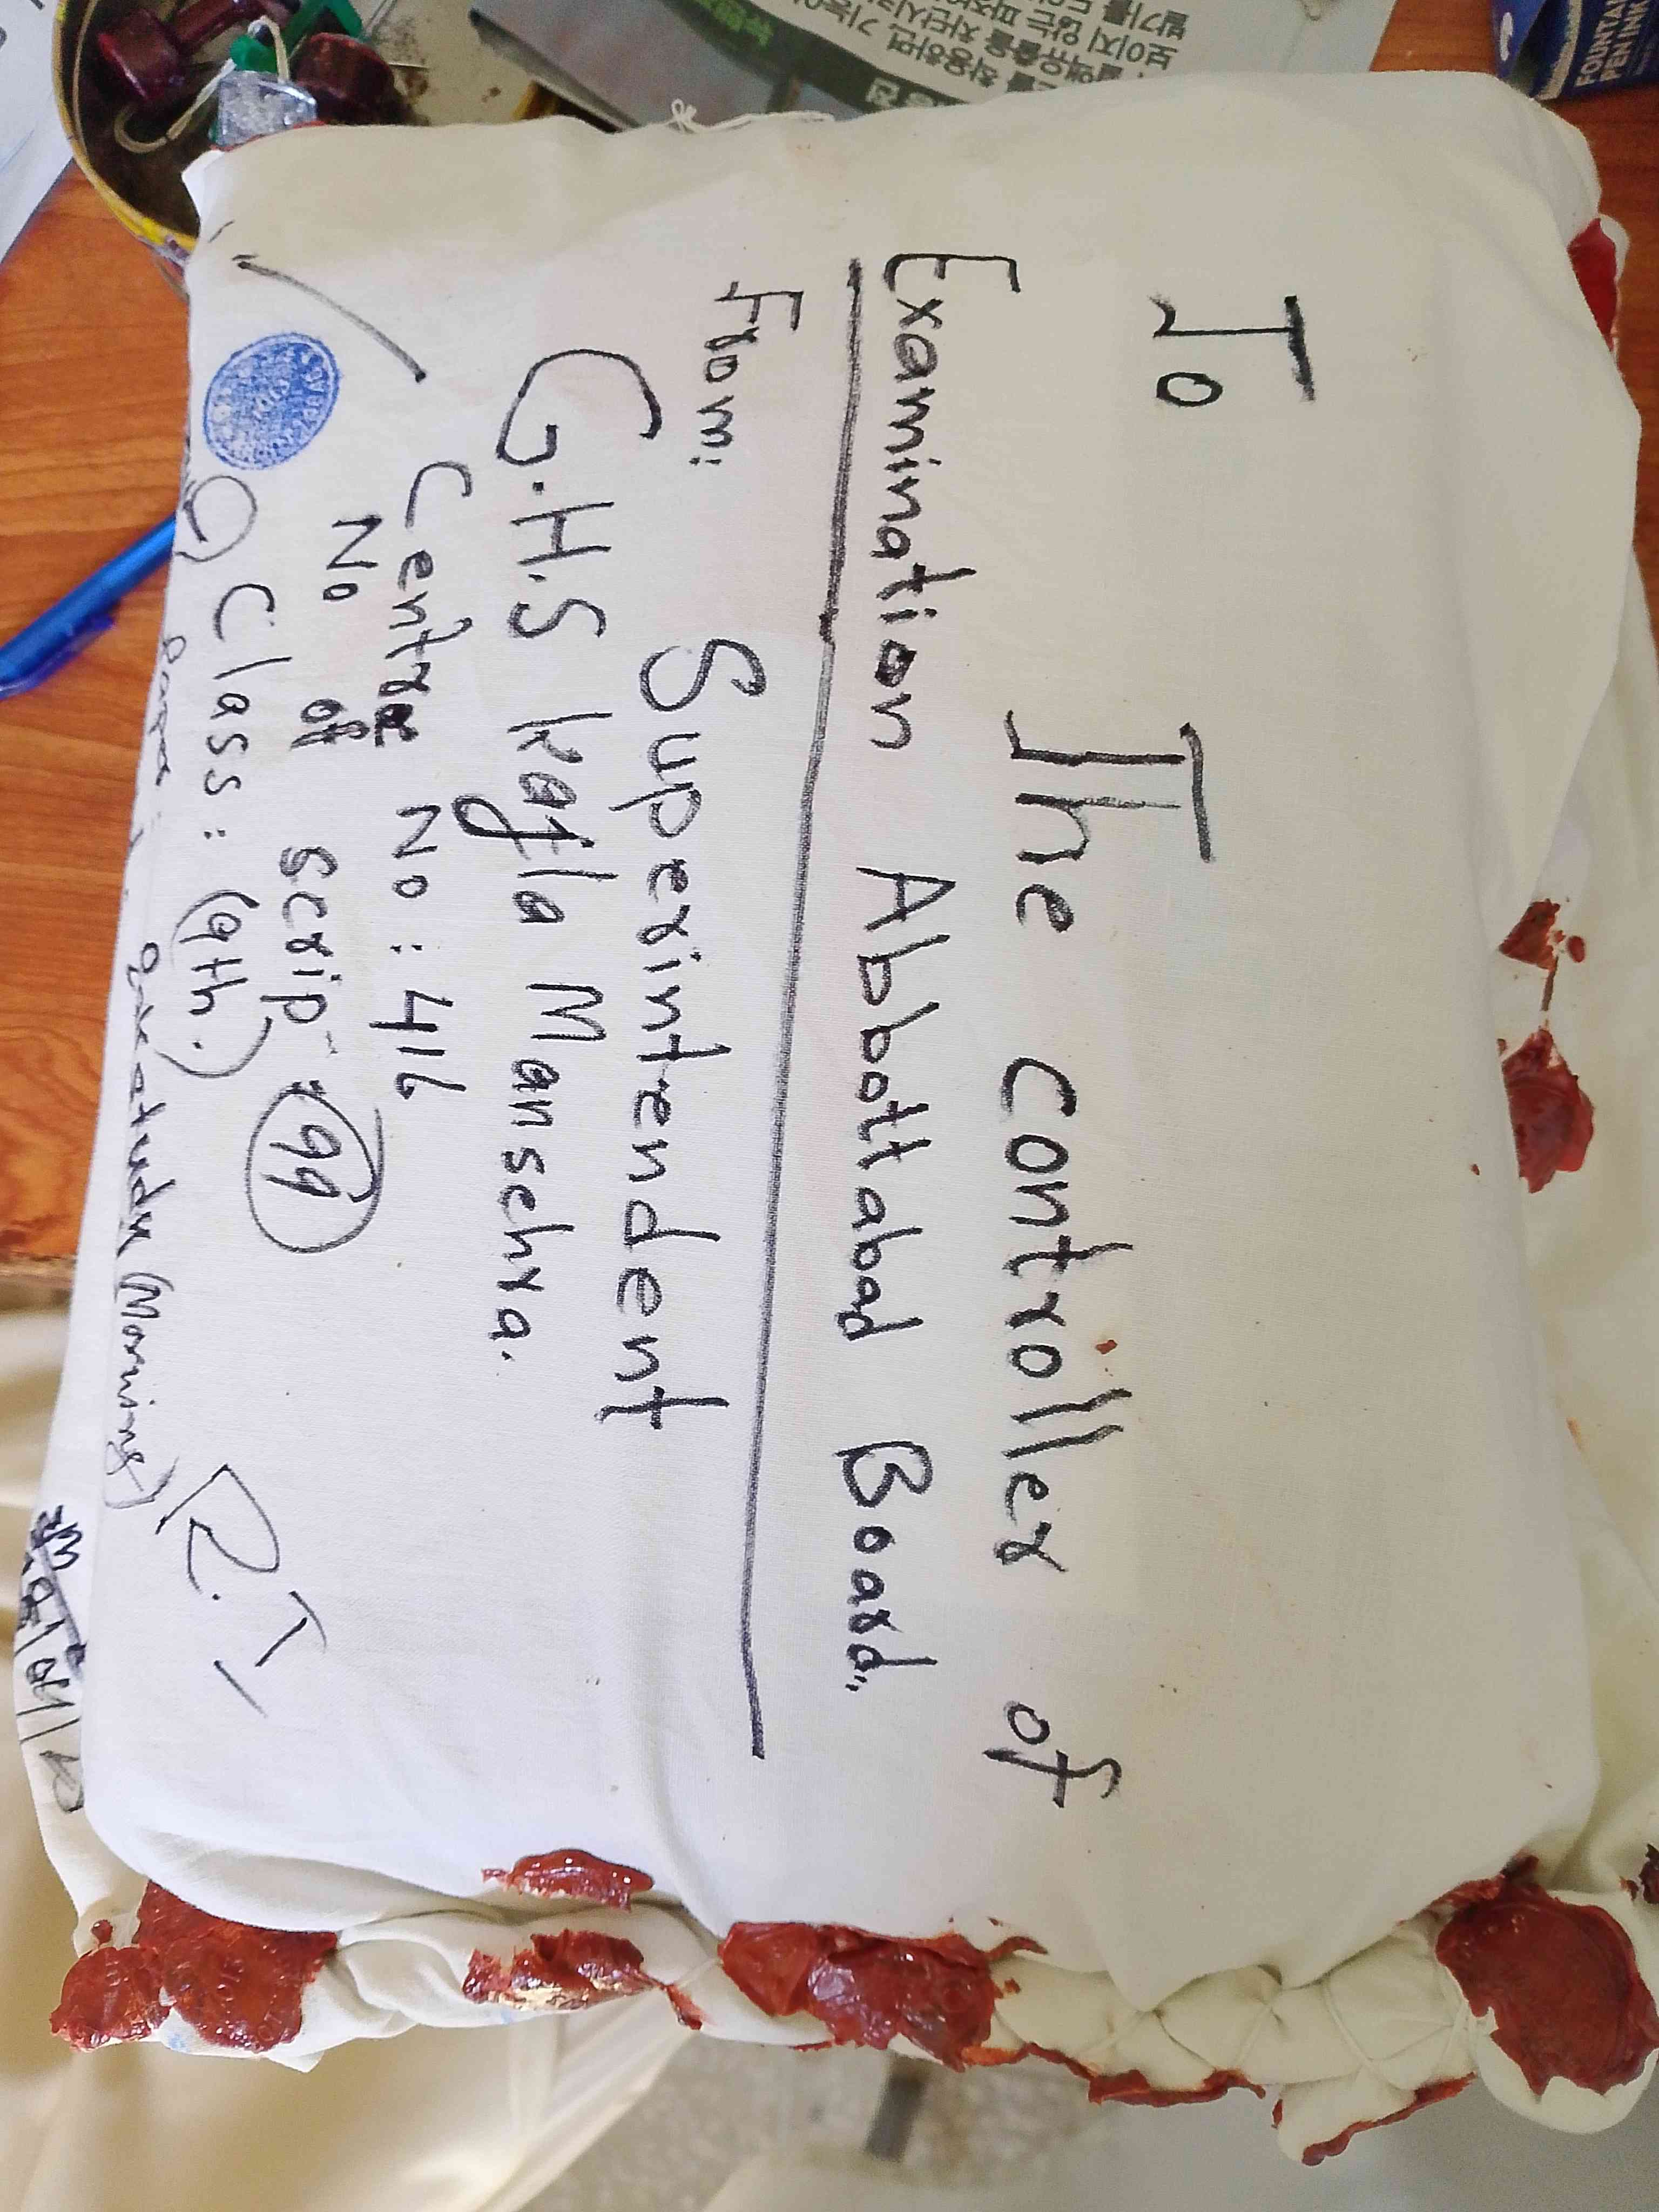 To
The Controller of
Examination Abbottabad Board."
From:
Superintendent
G.H.S Kagla Mansehra.
Centre No: 416
No of Scrip: 99
Class: (9th.)
Pak study (Morning)
R.I
FOUNTAIN
PEN INK